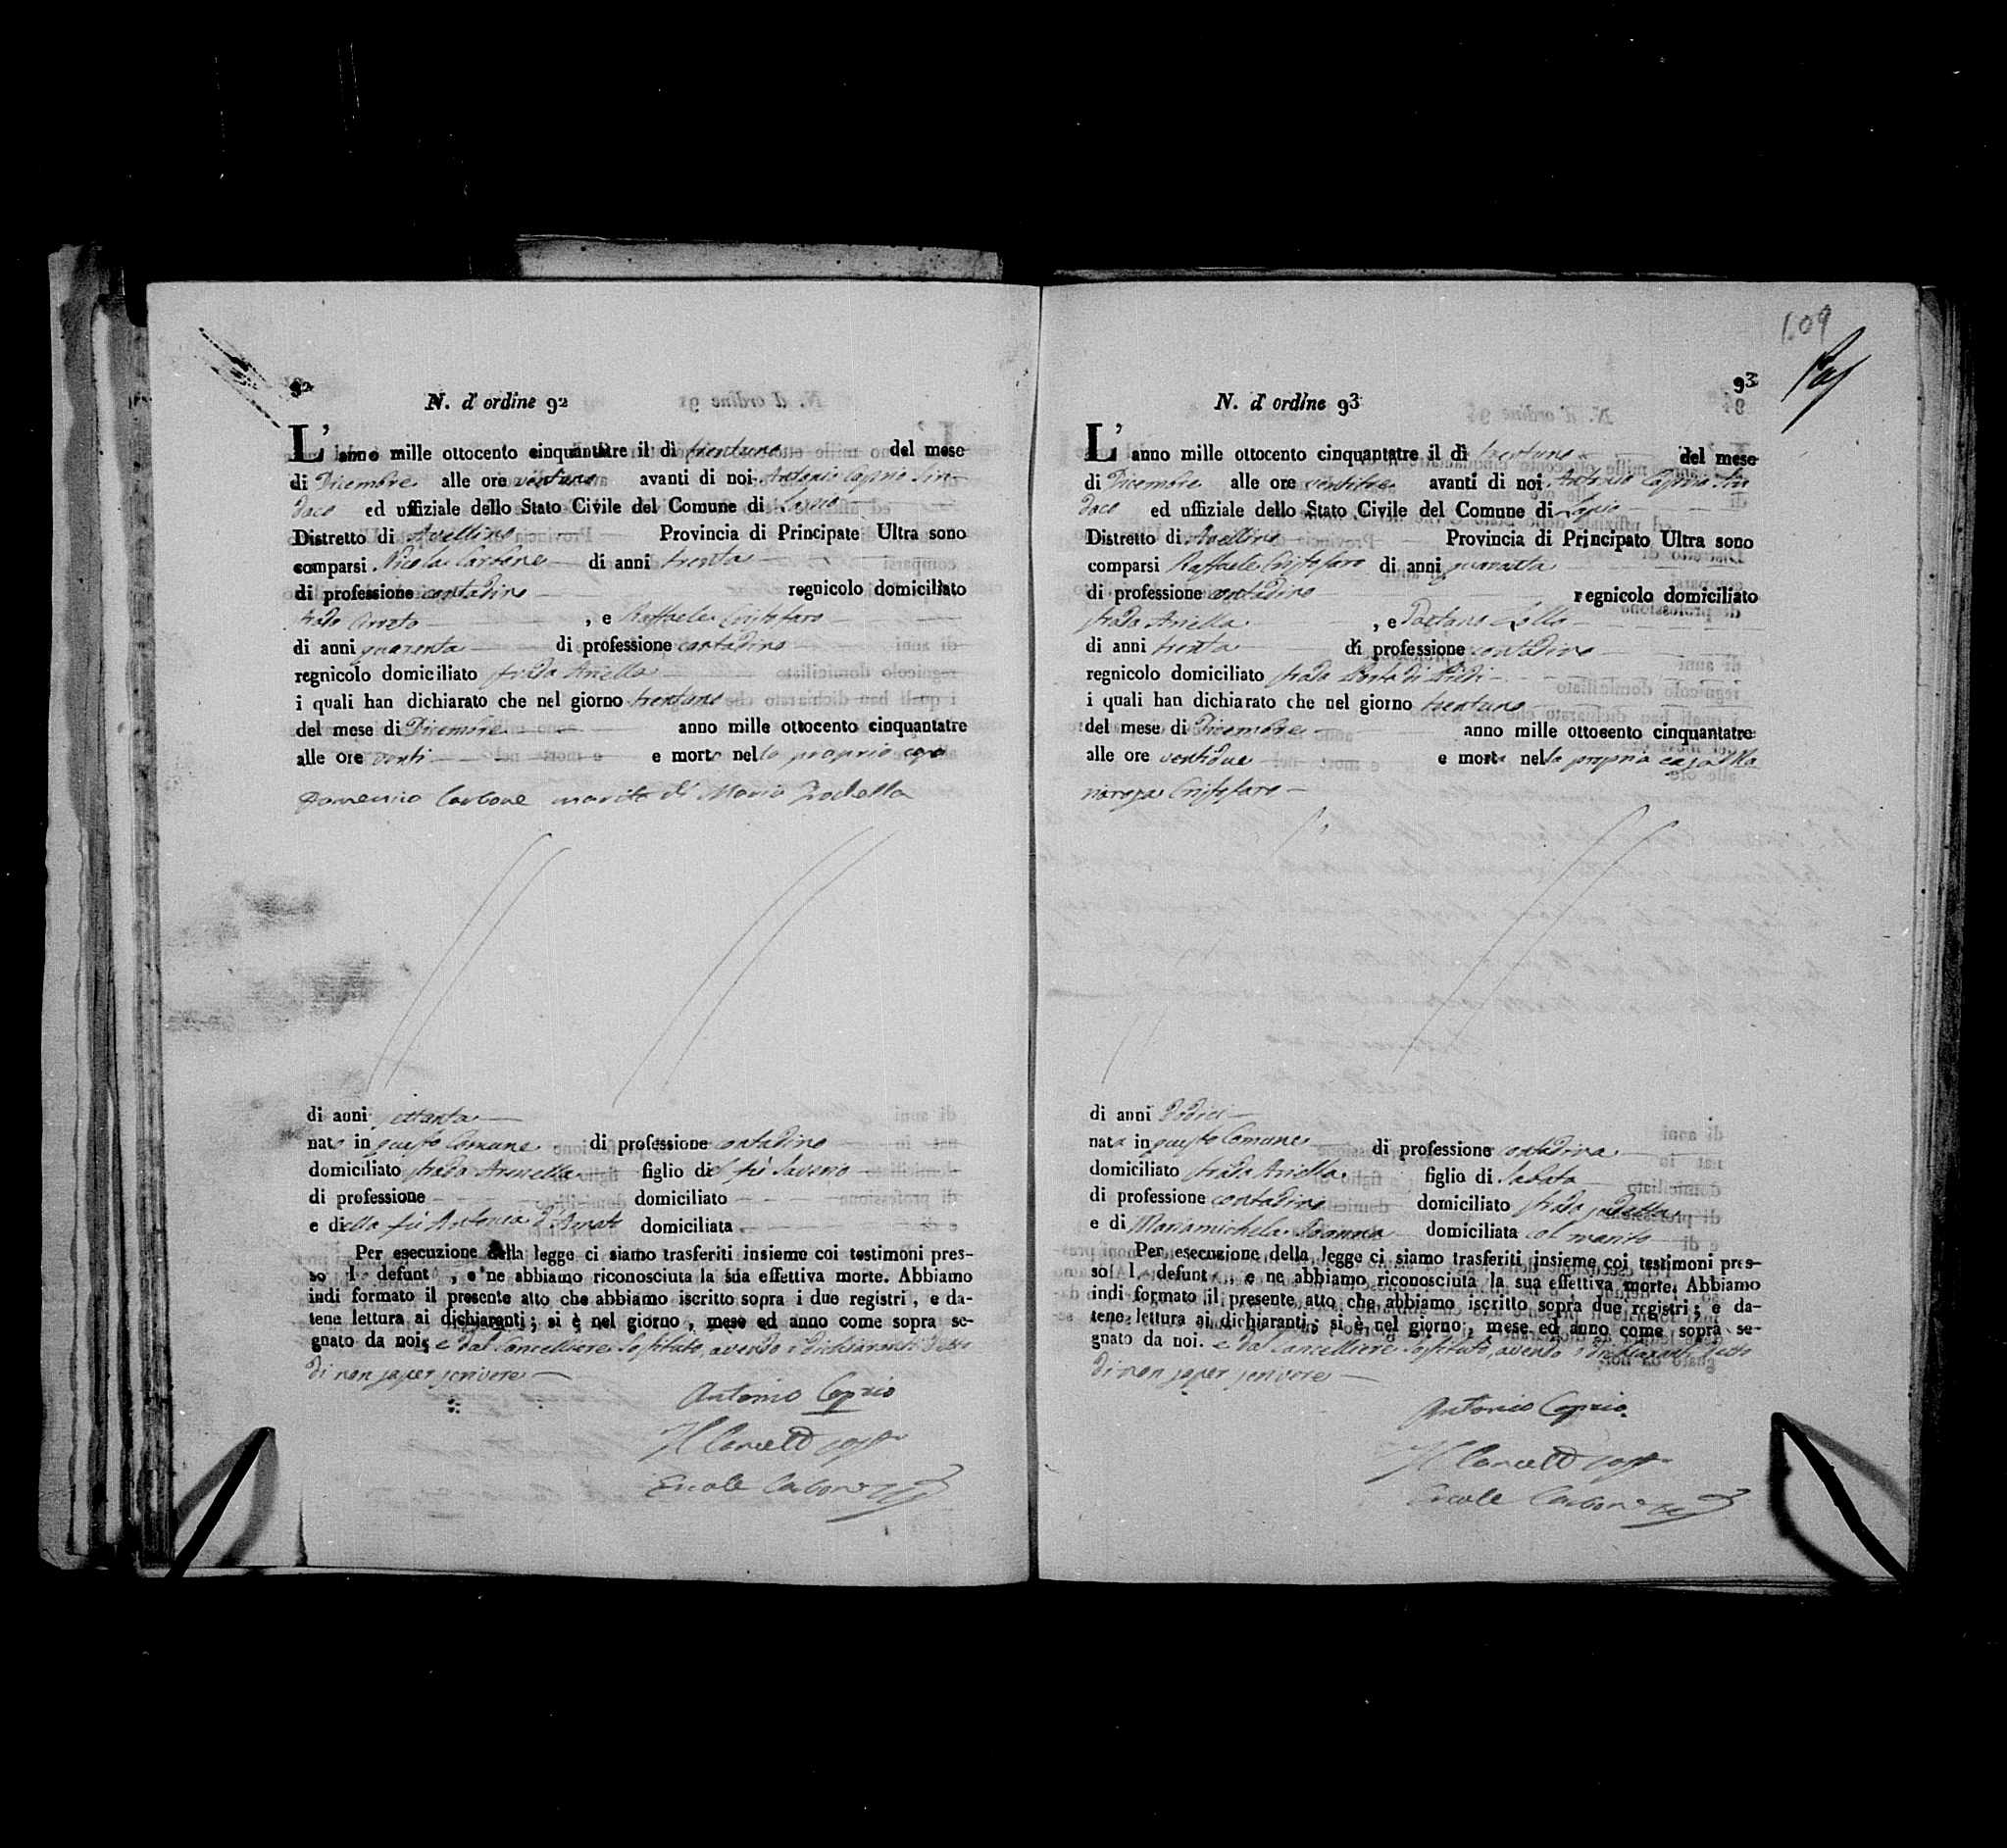 92
N. d' ordine 92
L' anno mille ottocento cinquantatre il dì trentuno del mese
di Dicembre alle ore ventuno avanti di noi Antonio Caprio Sin-
daco ed uffiziale dello Stato Civile del Comune di Lapio
Distretto di Avellino Provincia di Principato Ultra sono
comparsi Nicola Carbone di anni trenta
di professione contadino regnicolo domiciliato
strada , e Raffaele Cristofaro
di anni quaranta di professione contadino
regnicolo domiciliato strada Ariella
i quali han dichiarato che nel giorno trentuno
del mese di Dicembre anno mille ottocento cinquantatre
alle ore venti e morto nella propria casa
Domenico Carbone marito di Maria
di anni settanta
nato in questo Comune di professione contadino
domiciliato strada figlio del fù Saverio
di professione domiciliato
e della fù Antonia d'Amato domiciliata
Per esecuzione della legge ci siamo trasferiti insieme coi testimoni pres-
so l defunt , e ne abbiamo riconosciuta la sua effettiva morte. Abbiamo
indi formato il presente atto che abbiamo iscritto sopra i due registri, e da-
tene lettura ai dichiaranti; si è nel giorno, mese ed anno come sopra se-
gnato da noi, e dal Cancelliere Sostituto, avendo i dichiaranti detto
di non saper scrivere
Antonio Caprio
Il Cancell sost
Ercole Carbone
109
93
N. d' ordine 93
L' anno mille ottocento cinquantatre il dì trentuno del mese
di Dicembre alle ore ventitre avanti di noi Antonio Caprio Sin
daco ed uffiziale dello Stato Civile del Comune di Lapio
Distretto di Avellino Provincia di Principato Ultra sono
comparsi Raffaele Cristofaro di anni quaranta
di professione contadino regnicolo domiciliato
strada Ariella , e Gaetano Lallo
di anni trenta di professione contadino
regnicolo domiciliato strada Porta di Piedi
i quali han dichiarato che nel giorno trentuno
del mese di Dicembre anno mille ottocento cinquantatre
alle ore ventidue e morta nella propria casa Ma
riarosa Cristofaro
di anni dodici
nata in questo Comune di professione contadina
domiciliato strada Ariella figlia di Sabato
di professione contadino domiciliato strada suddetta
e di Mariamichela Ioanna domiciliata col marito
Per esecuzione della legge ci siamo trasferiti insieme coi testimoni pres-
so l defunt , e ne abbiamo riconosciuta la sua effettiva morte. Abbiamo
indi formato il presente atto che abbiamo iscritto sopra due registri; e da-
tene lettura ai dichiaranti; si è nel giorno, mese ed anno come sopra se-
gnato da noi. e dal Cancelliere Sostituto, avendo i dichiaranti detto
di non saper scrivere
Antonio Caprio
Il Cancell sost
Ercole Carbone